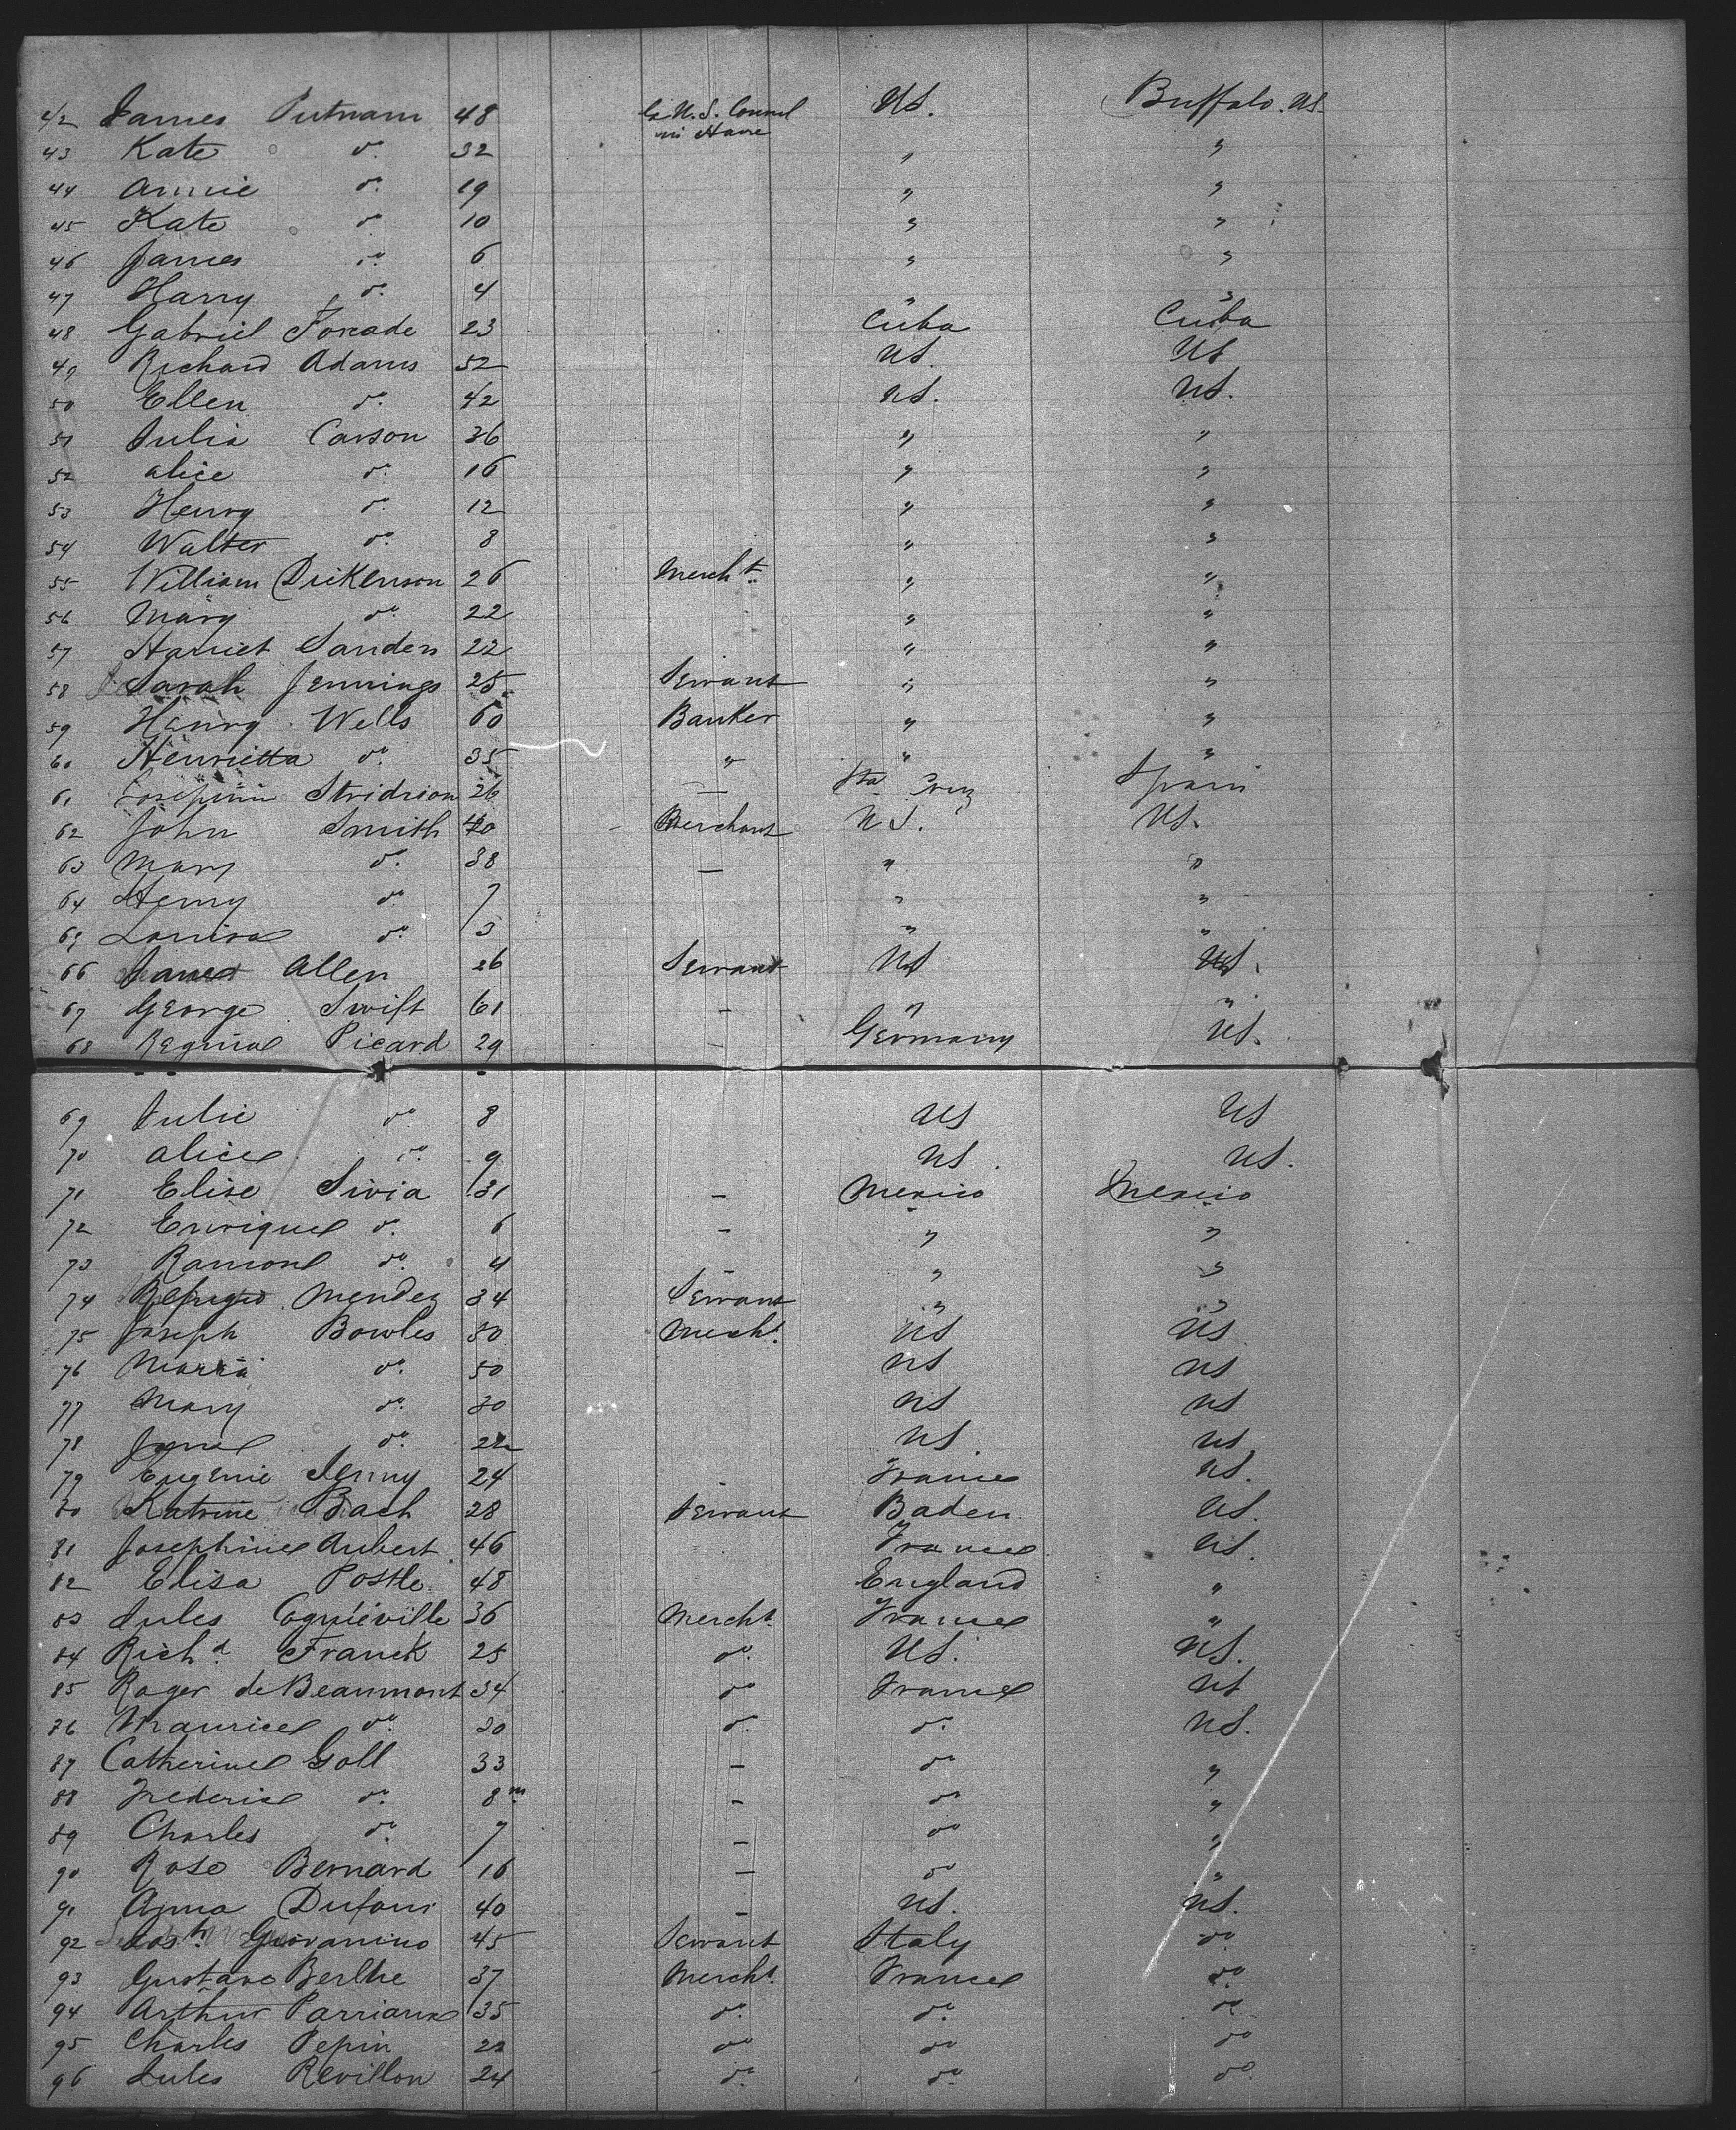 42 James Putnam 48 Ex U.S. Consul in Havre US. Buffalo. US.
43 Kate do. 32 " "
44 Annie do. 19 " "
45 Kate do. 10 " "
46 James do. 6 " "
47 Harry do. 4 " "
48 Gabriel Forcade 23 Cuba Cuba
49 Richard Adams 52 US. US
50 Ellen do. 42 US. US.
51 Julia Carson 36 " "
52 Alice do. 16 " "
53 Henry do. 12 " "
54 Walter do. 8 " "
55 William Dickenson 26 Mercht. " "
56 Mary do. 22 " "
57 Harriet Sanders 22 " "
58 Sarah Jennings 25 Servant " "
59 Henry Wells 60 Banker " "
60 Henrietta do. 35 " " "
61 Stridrion 26 — Sta Cruz Spain
62 John Smith 40 Merchant U.S. US.
63 Mary do. 38 — " "
64 Henry do. 7 " "
65 Louisa do. 3 " "
66 Allen 26 Servant US US.
67 George Swift 61 - " "
68 Regina Picard 29 - Germany US.
69 Julie do 8 US US
70 Alice do. 9 US. US.
71 Elise Sivia 31 - Mexico Mexico
72 Enrique do. 6 - " "
73 Ramon do. 4 - " "
74 Refugio Mendez 34 Servant " "
75 Joseph Bowles 50 Mercht. US US
76 Maria do. 50 US US
77 Mary do. 30 US US
78 Jane do. 22 US. US
79 Eugenie Jenny 24 France US.
80 Katrine Bach 28 Servant Baden US.
81 Josephine Aubert 46 France US.
82 Elisa Postle 48 England "
83 Jules Coguiéville 36 Mercht. France "
84 Richd. Franck 25 do. US. US.
85 Roger de Beaumont 34 do France US
86 Maurice do. 30 do. do. US.
87 Catherine Goll 33 - do "
88 Frederic do. 8m. - do "
89 Charles do. 7 - do "
90 Rose Bernard 16 - do "
91 Anna Dufour 40 - US. US.
92 Josh. Giovanino 45 Servant Italy do
93 Gustave Berthe 37 Mercht. France do.
94 Arthur Parriaux 35 do. do. do
95 Charles Pepin 22 do do do
96 Jules Revillon 24 do. do. do.